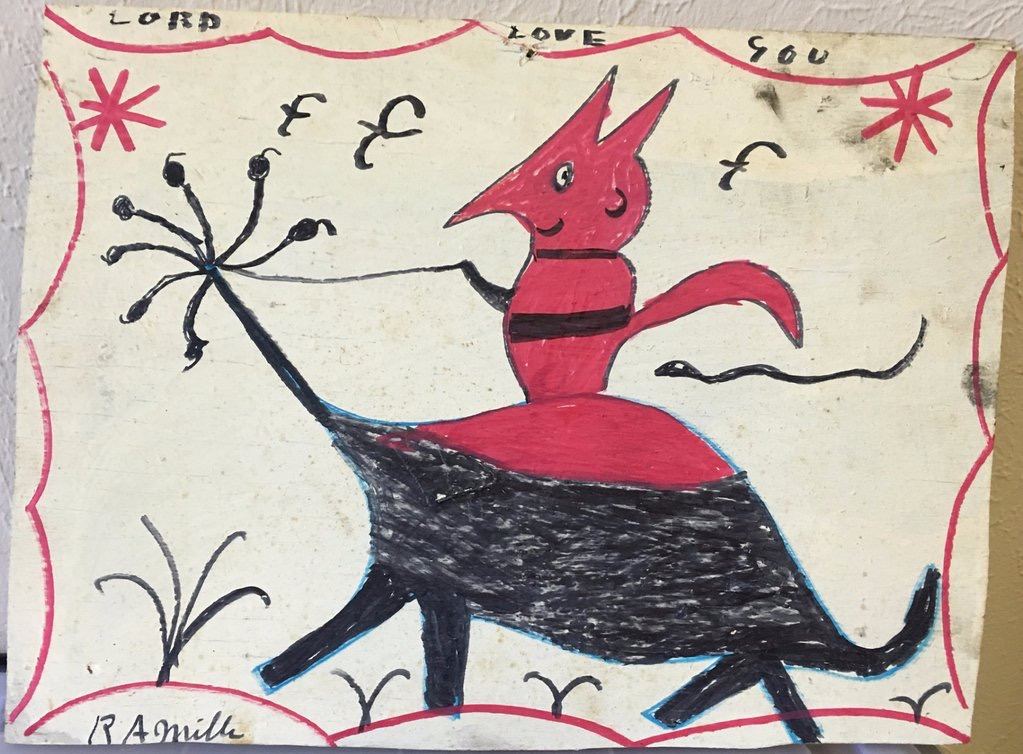 LORD LOVE YOU
R A Mille